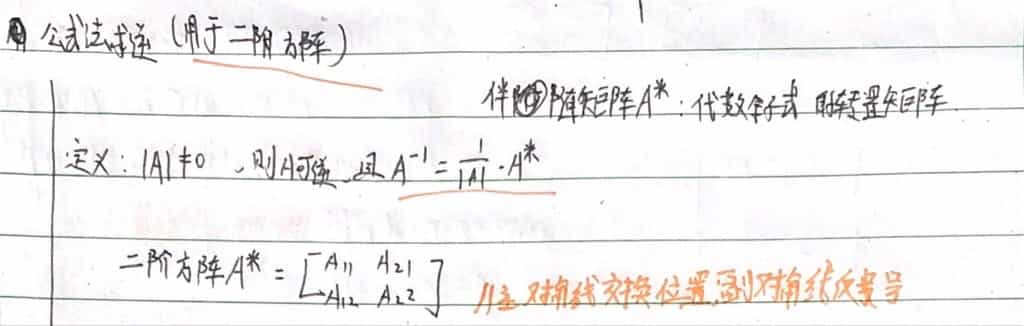 公式法求逆(用于二阶方阵)
伴随矩阵A*:代数余子式的转置矩阵
定义:|A|≠0,则A可逆,且A⁻¹=1/|A|·A*
二阶方阵A*=[A₁₁ A₂₁
A₁₂ A₂₂]
//主对角线交换位置,副对角线反变号